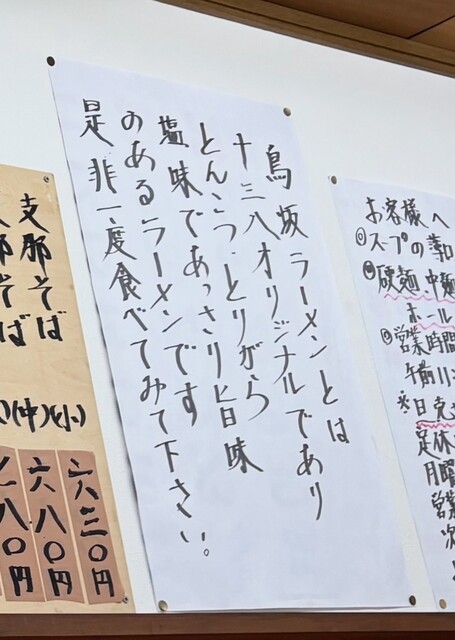 鳥坂ラーメンとは
十三八オリジナルであり
とんこつ・とりがら
塩味であっさり旨味
のあるラーメンです
是非一度食べてみて下さい。
お客様へ
スープの
硬麺 中麺
ホール
営業時間
午前11
定休
月曜
営業
次
支那そば
(中)(小)
六三〇円
六八〇円
八〇円